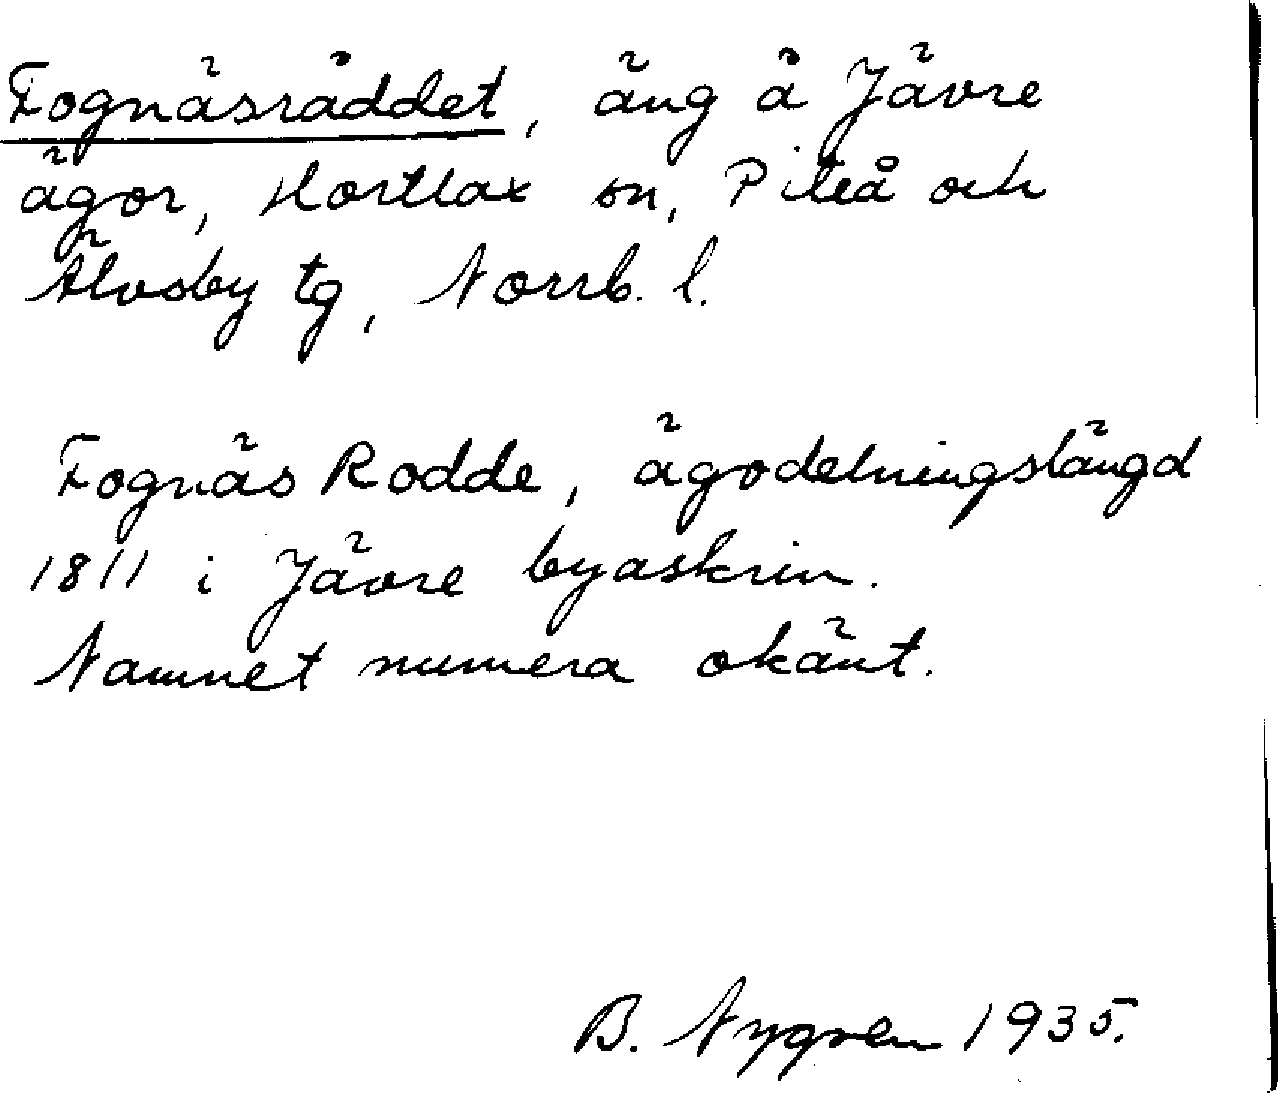 Fognäsråddet, äng å Jävre
ägor, Hortlax sn, Piteå och
Älvsby tg, Norrb. l.
Fognäs Rodde, ägodelningslängd
1811 i Jävre byaskrin.
Namnet numera okänt.
B. Nygren 1935.